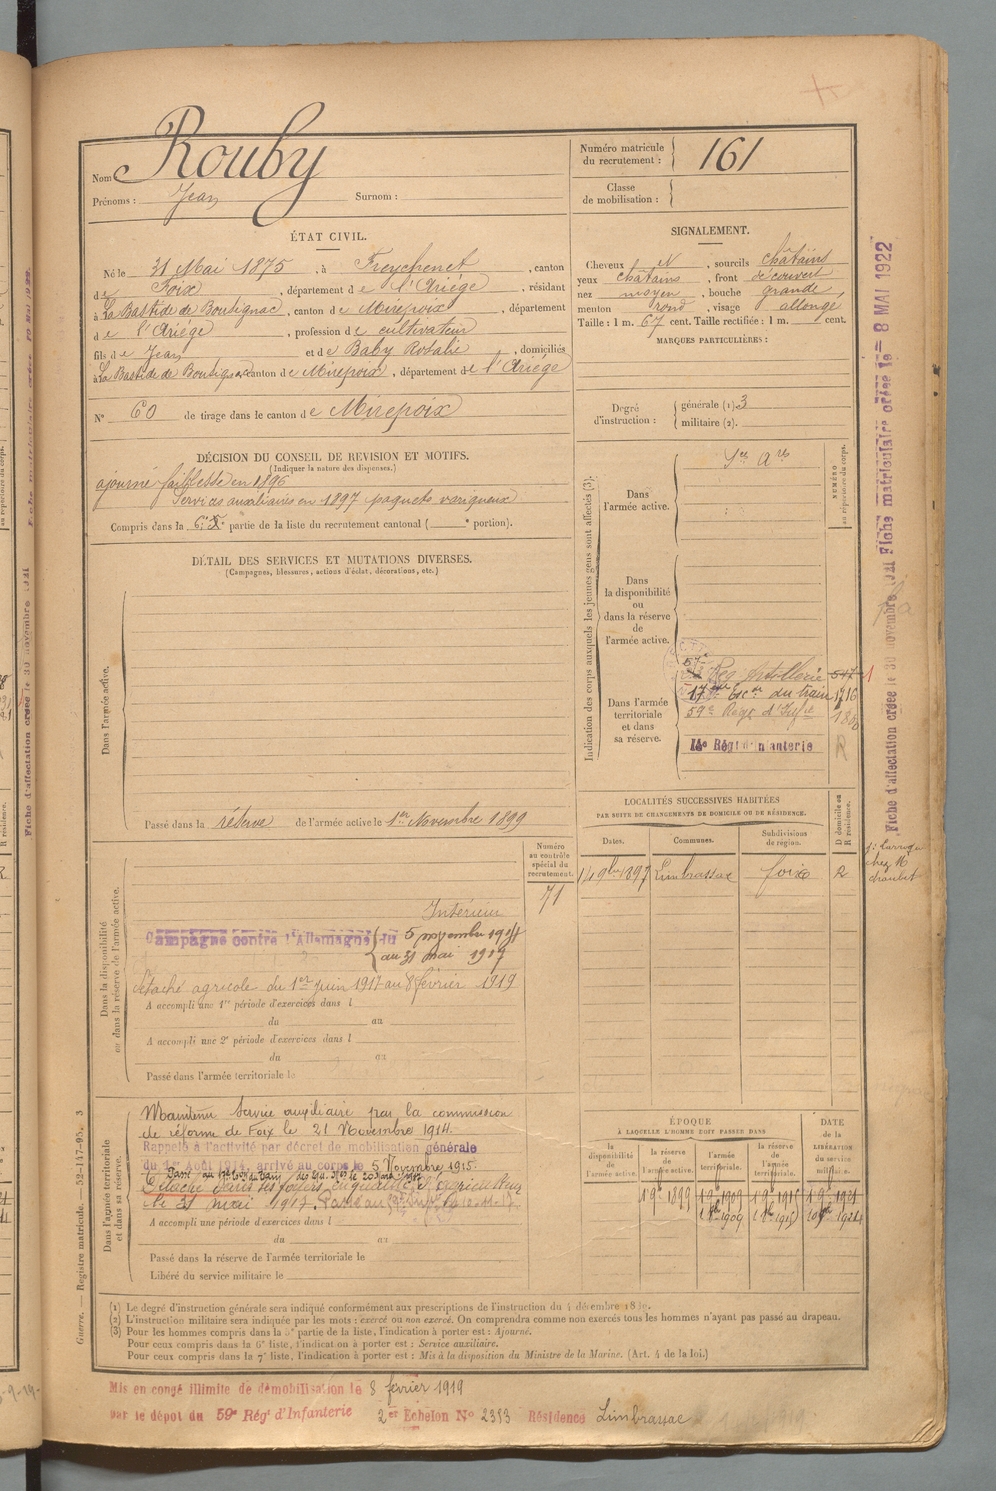 Nom Rouby
Prénoms : Jean Surnom :
Numéro matricule du recrutement : 161
Classe de mobilisation :
ÉTAT CIVIL.
Né le 31 Mai 1875, à Freychenet, canton
de Foix, département de l'Ariége, résidant
à La Bastide de Bousignac, canton de Mirepoix, département
de l'Ariége, profession de cultivateur
fils de Jean et de Baby Rosalie, domiciliés
à La Bastide de Bousignac canton de Mirepoix, département de l'Ariége
N° 60 de tirage dans le canton de Mirepoix
SIGNALEMENT.
Cheveux et, sourcils châtains
yeux châtains, front découvert
nez moyen, bouche grande,
menton rond, visage allongé
Taille : 1 m. 67 cent. Taille rectifiée : 1 m. cent.
MARQUES PARTICULIÈRES :
Degré d'instruction : générale (1). 3
militaire (2).
DÉCISION DU CONSEIL DE REVISION ET MOTIFS.
(Indiquer la nature des dispenses.)
ajourné faiblesse en 1896
Services auxiliaires en 1897 paquets variqueux
Compris dans la 6e partie de la liste du recrutement cantonal ( e portion).
DÉTAIL DES SERVICES ET MUTATIONS DIVERSES.
(Campagnes, blessures, actions d'éclat, décorations, etc.)
Dans l'armée active.
Passé dans la réserve de l'armée active le 1er Novembre 1899
Indication des corps auxquels les jeunes gens sont affectés (3).
NUMÉRO au répertoire du corps.
Dans l'armée active.
Dans la disponibilité ou dans la réserve de l'armée active.
Dans l'armée territoriale et dans sa réserve.
Reg Artillerie
17me Escon du train 1716
59e Regt d'Infie
14e Régt d'Infanterie R
LOCALITÉS SUCCESSIVES HABITÉES
PAR SUITE DE CHANGEMENTS DE DOMICILE OU DE RÉSIDENCE.
D domicile ou R résidence.
Dates. Communes. Subdivisions de région.
14 9bre 1897 Limbrassac foix R
Numéro au contrôle spécial du recrutement.
71
Dans la disponibilité ou dans la réserve de l'armée active.
Intérieur
Campagne contre l'Allemagne du 5 novembre 1914
au 31 mai 1917
Détaché agricole du 1er juin 1917 au 8 février 1919
A accompli une 1re période d'exercices dans l
du au
A accompli une 2e période d'exercices dans l
du au
Passé dans l'armée territoriale le
Dans l'armée territoriale et dans sa réserve.
Maintenu Service auxiliaire par la commission
de réforme de Foix le 21 Novembre 1914.
Rappelé à l'activité par décret de mobilisation générale
du 1er Août 1914, arrivé au corps le 5 Novembre 1915.
Détaché dans ses foyers
le 31 mai 1917. Passé au
A accompli une période d'exercices dans l
du au
Passé dans la réserve de l'armée territoriale le
Libéré du service militaire le
ÉPOQUE
À LAQUELLE L'HOMME DOIT PASSER DANS
la disponibilité de l'armée active. la réserve de l'armée active. l'armée territoriale. la réserve de l'armée territoriale.
DATE de la LIBÉRATION du service militaire.
1 9e 1899
(1) Le degré d'instruction générale sera indiqué conformément aux prescriptions de l'instruction du 4 décembre 1889.
(2) L'instruction militaire sera indiquée par les mots : exercé ou non exercé. On comprendra comme non exercés tous les hommes n'ayant pas passé au drapeau.
(3) Pour les hommes compris dans la 5e partie de la liste, l'indication à porter est : Ajourné.
Pour ceux compris dans la 6e liste, l'indication à porter est : Service auxiliaire.
Pour ceux compris dans la 7e liste, l'indication à porter est : Mis à la disposition du Ministre de la Marine. (Art. 4 de la loi.)
Mis en congé illimité de démobilisation le 8 février 1919
par le dépôt du 59e Régt d'Infanterie 2e Echelon No 2353 Résidence Limbrassac
Guerre. — Registre matricule. — 52-147-95. 3
Fiche d'affectation créée le 30 novembre
Fiche matriculaire créée le — 8 MAI 1922